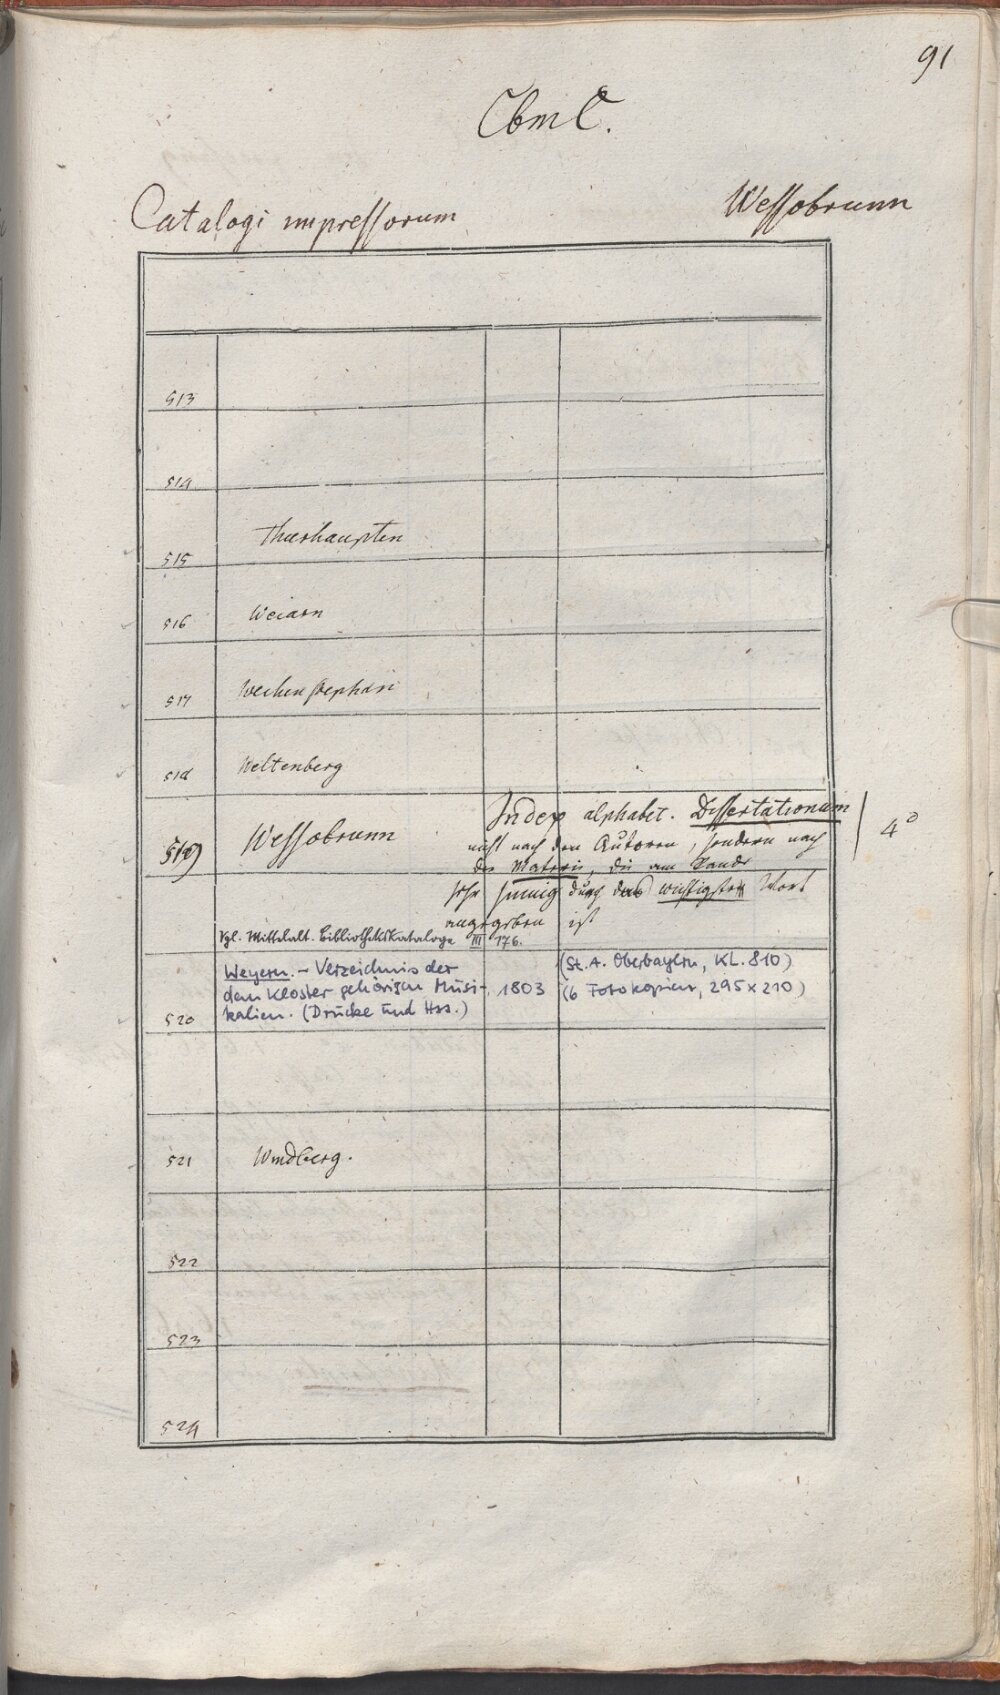 91
Cbm C.
Catalogi impressorum Wessobrunn
513
514
515 Thierhaupten
516 Weiarn
517 Weihenstephan
518 Weltenberg
519 Wessobrunn Index alphabet. Dissertationum 4°
nicht nach den Autoren, sondern nach
der Materie, die am Rande
sehr sinnig durch das wichtigste Wort
angegeben ist
Vgl. Mittelalt. Bibliothekskataloge III 176.
520 Weyern. – Verzeichnis der
dem Kloster gehörigen Musi-
kalien. (Drucke und Hss.) 1803 (St. A. Oberbayern, KL. 810)
(6 Fotokopien, 295 x 210)
521 Windberg.
522
523
524